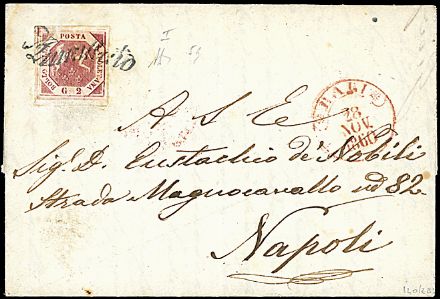 POSTA
BOLLO
NAPOLETANA
G 2
Annullato
BARI
28
NOV.
1860
A S E
Sig.r D. Eustachio de' Nobili
Strada Magnocavallo nº 82.
Napoli